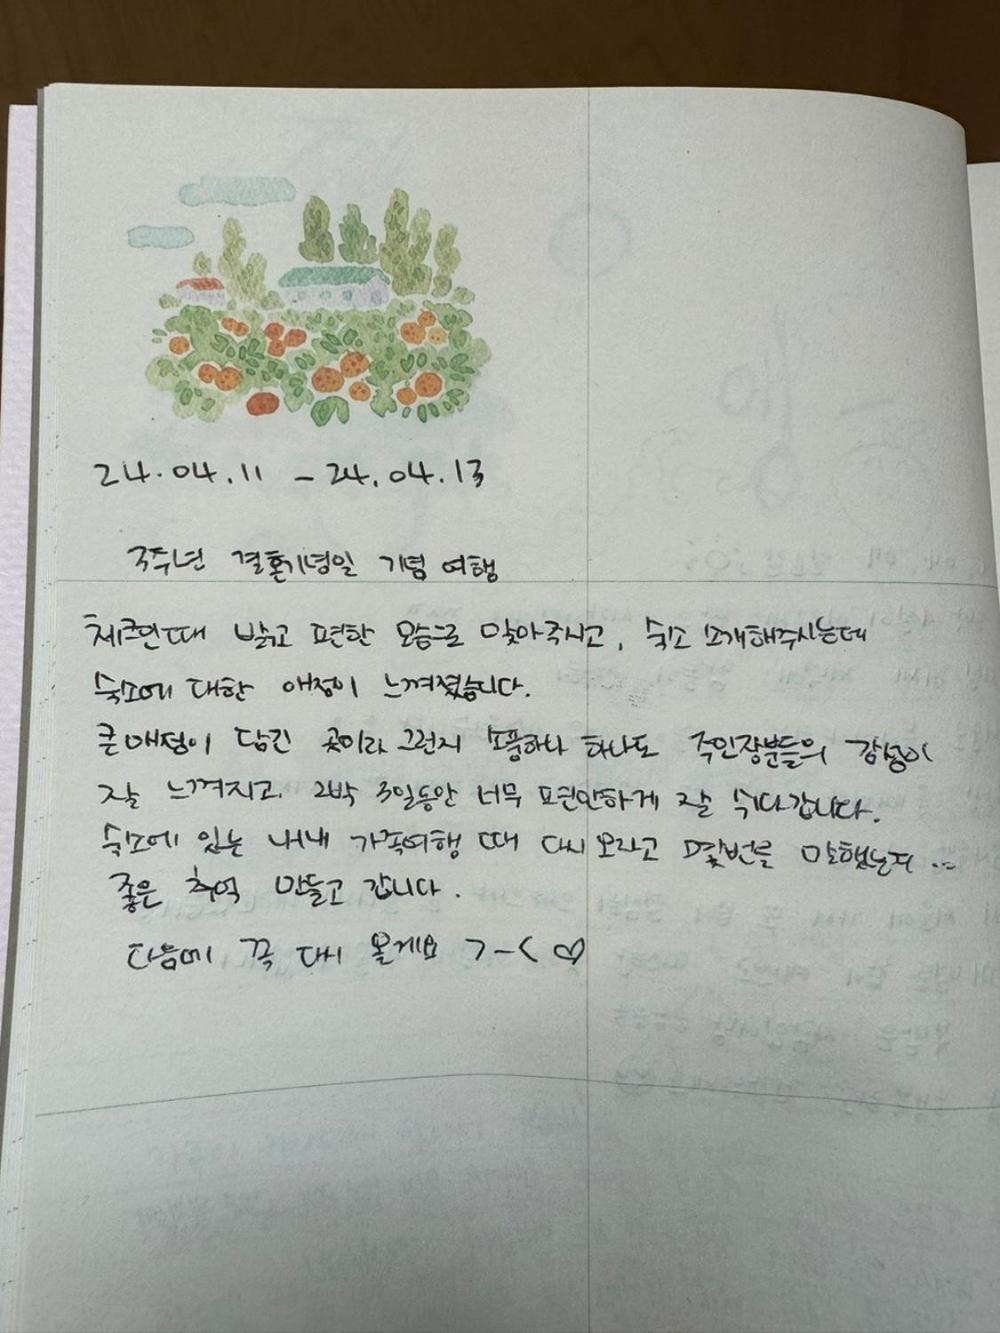 24.04.11 - 24.04.13
3주년 결혼기념일 기념 여행
체크인때 밝고 편한 모습으로 맞아주시고, 숙소 소개해주시는데
숙소에 대한 애정이 느껴졌습니다.
큰 애정이 담긴 곳이라 그런지 소품하나 하나도 주인장분들의 감성이
잘 느껴지고. 2박 3일동안 너무 편안하게 잘 쉬다갑니다.
숙소에 있는 내내 가족여행 때 다시 오자고 몇번을 말했는지...
좋은 추억 만들고 갑니다.
다음에 꼭 다시 올게요 >-< ♡